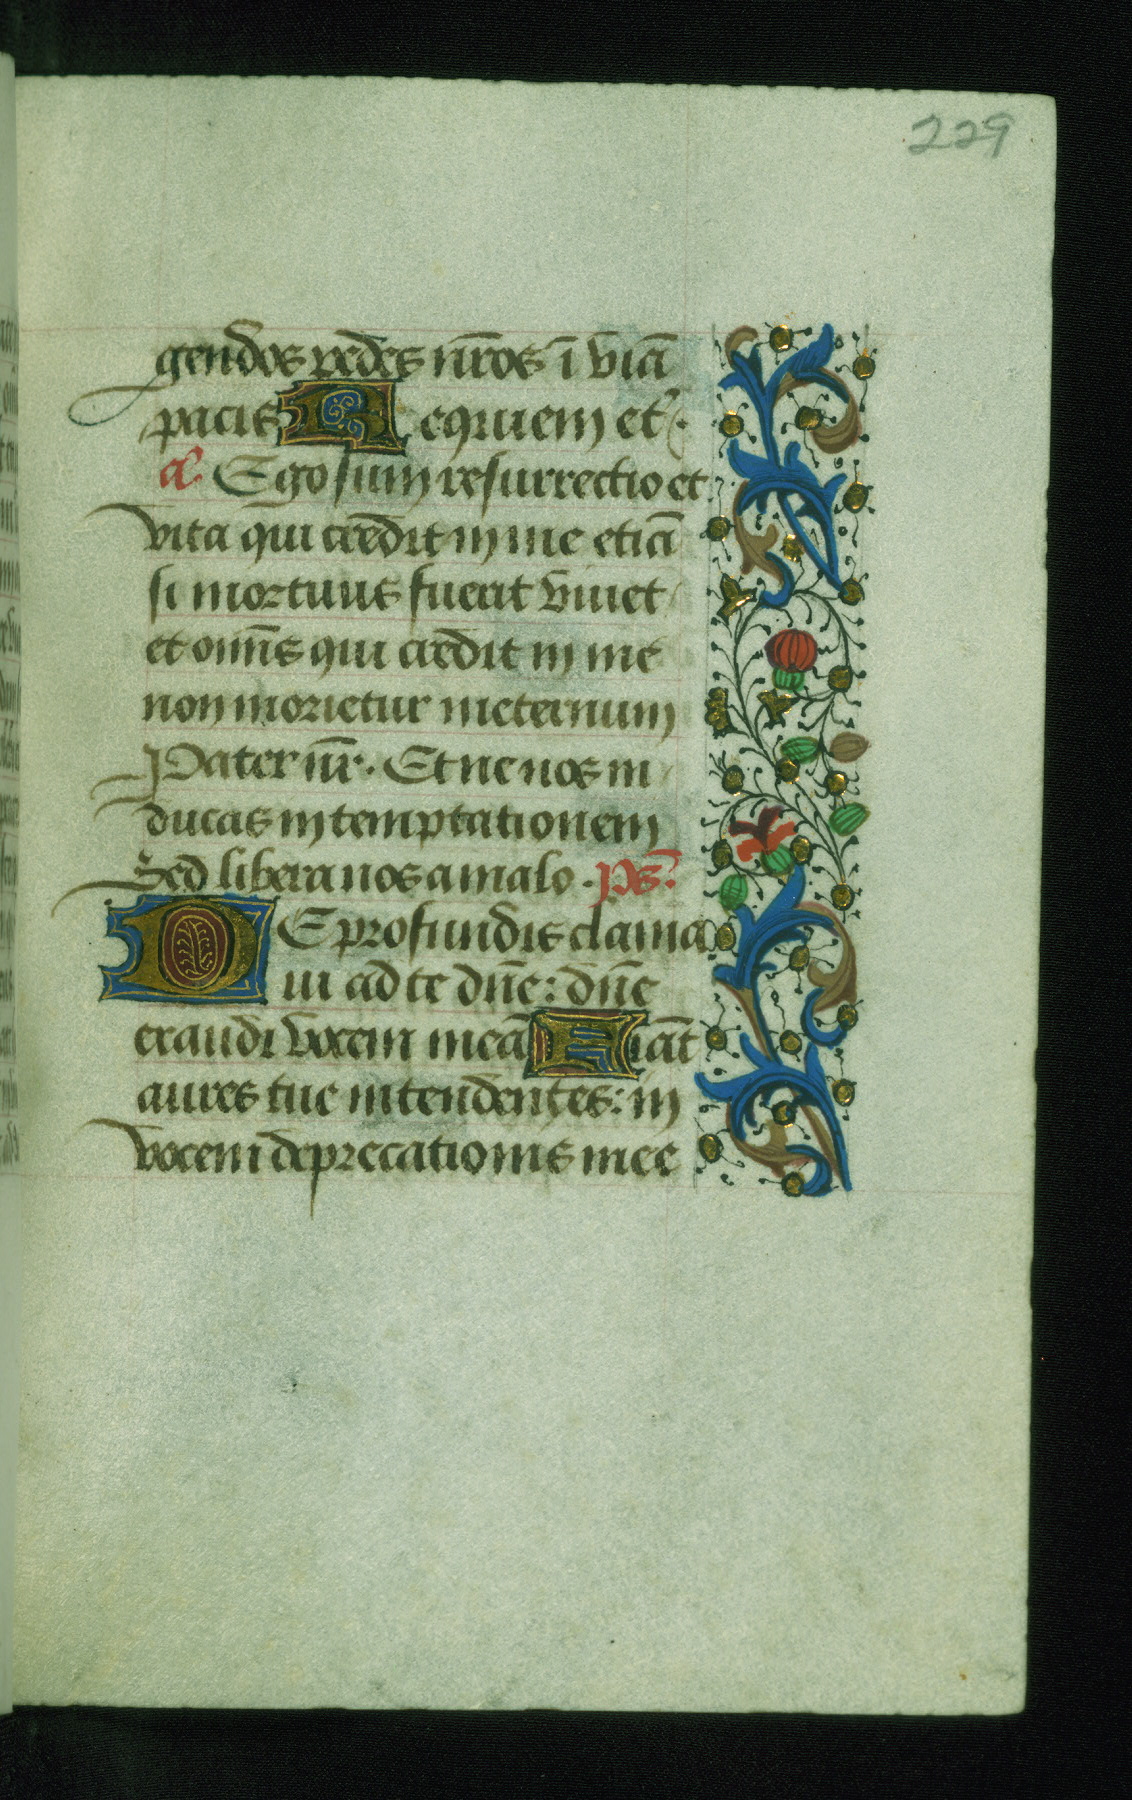 229
gendos pedes nr̄os ī viā
pacis Requiem et̄
a͞ Ego sum resurrectio et
vita qui credit in me etiā
si mortuus fuerit viuet
et omīs qui credit in me
non morietur ineternum
Pater nr̄. Et ne nos in
ducas in temptationem
Sed libera nos a malo. ps̄.
DE profundis clama
ui ad te dn̄e: dn̄e
exaudi vocem meā Fiāt
aures tue intendentes: in
vocem deprecationis mee